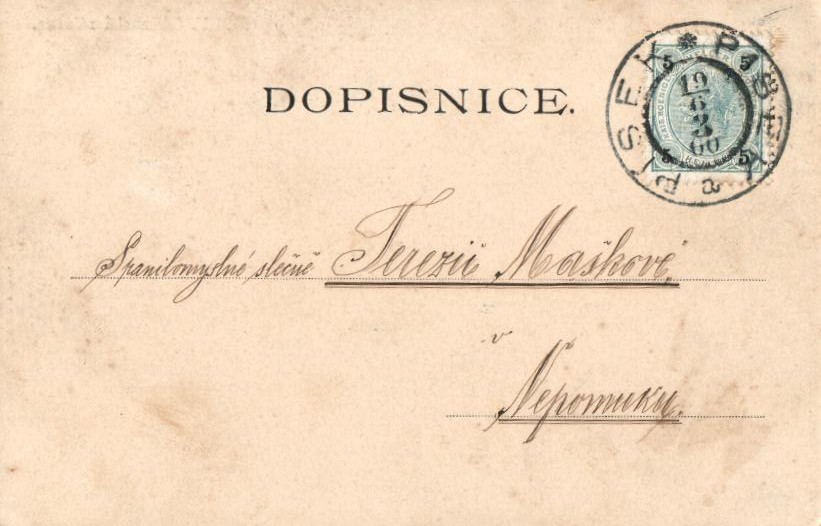 DOPISNICE.
PISEK * PISEK a
5 5
19
6
3
00
5 5
Spanilomyslné slečně Terezii Maškové
v
Nepomuku.